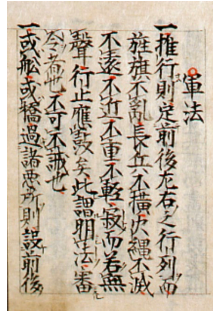 軍法
一推行則定前後左右之行列而
旌旗不亂長兵不横火縄不滅
不遠不近不重不輕寂而若無
聲行止應鼓矣此謂明法審
令者也不可不誡也
一或舩或橋過諸悪所則設前後